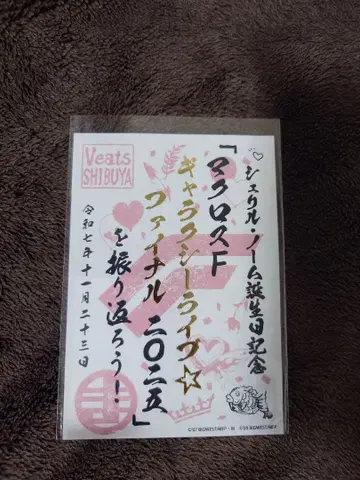 ♡シェリル・ノーム誕生日記念
「マクロスF
ギャラクシーライブ☆
ファイナル 二〇二五」
を振り返ろう！
令和七年十一月二十三日
Veats
SHIBUYA